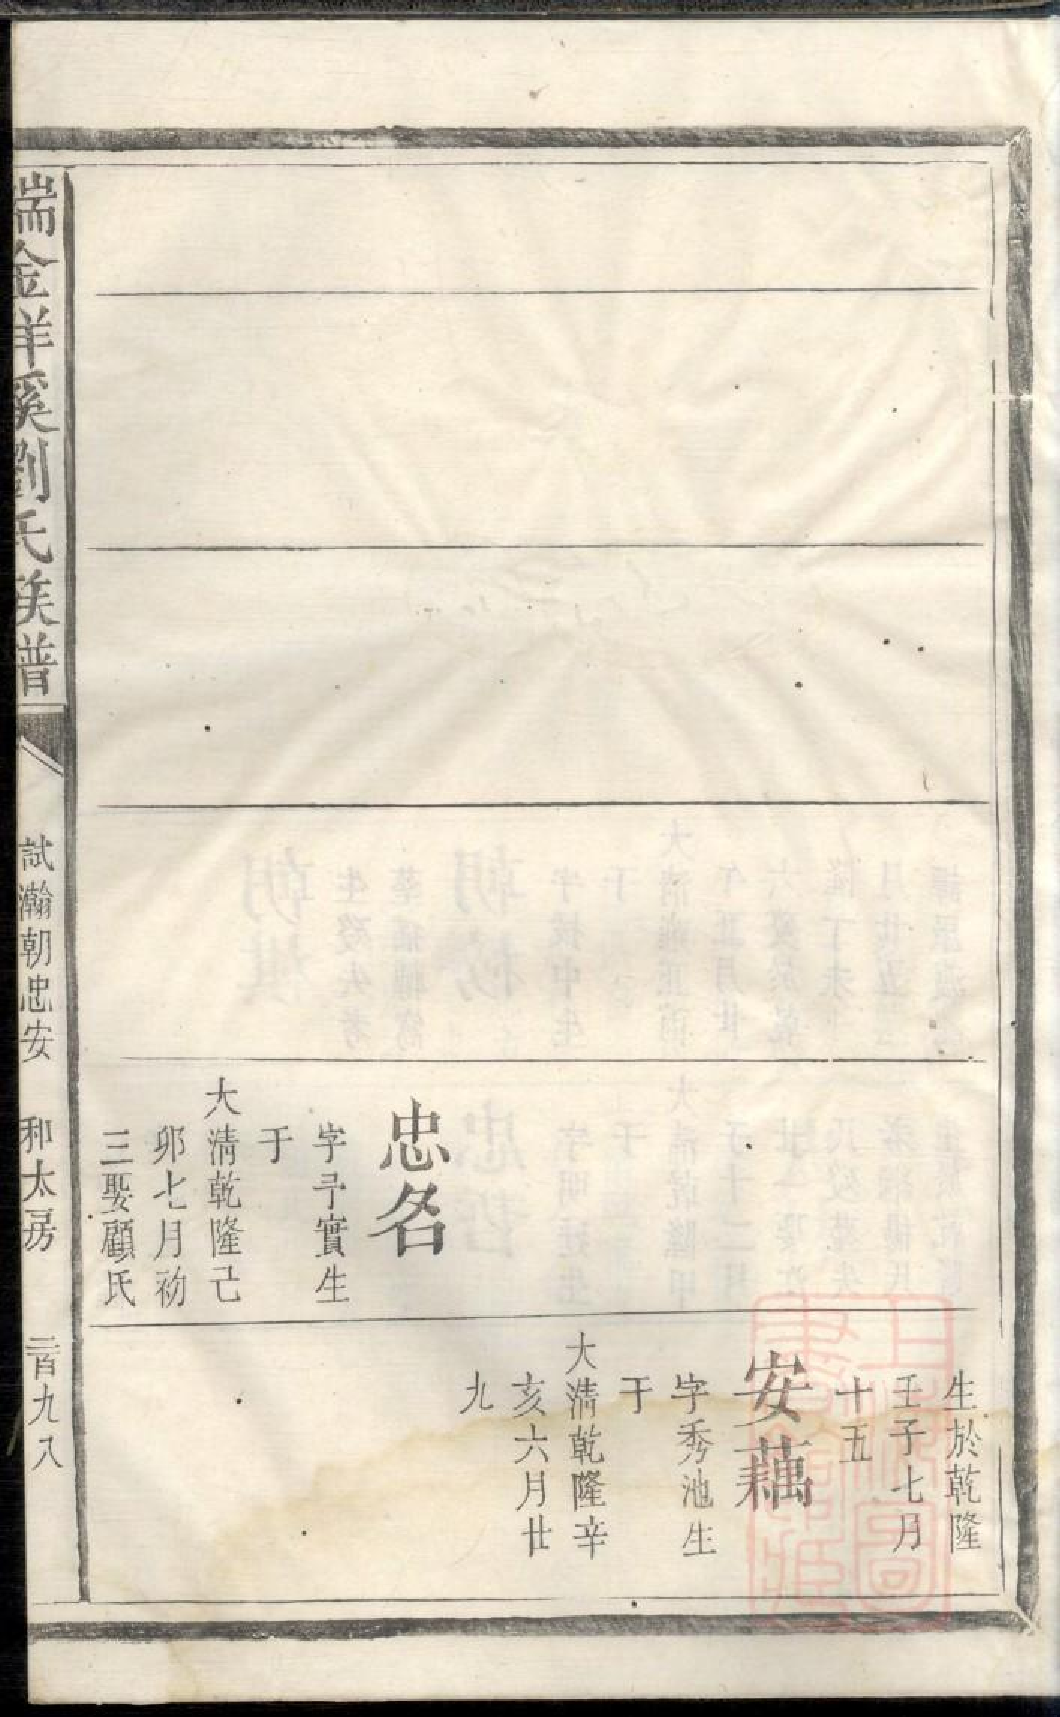 生於乾隆
壬子七月
十五
安藕
字秀池生
于
大清乾隆辛
亥六月廿
九
忠名
字予實生
于
大清乾隆己
卯七月初
三娶顧氏
瑞金祥溪劉氏族譜
試瀚朝忠安
和太房
二百九八